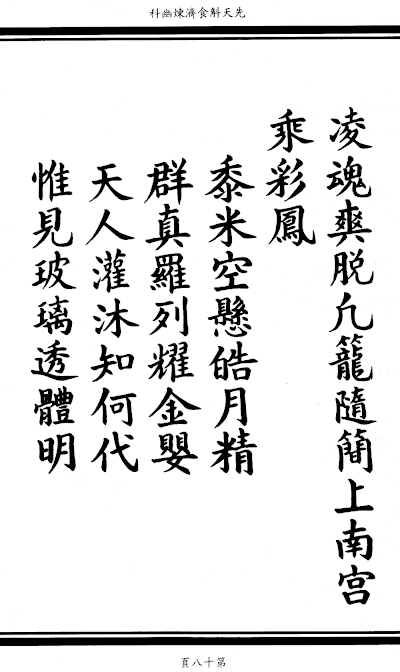 先天斛食濟煉幽科
凌魂爽脱凢籠隨簡上南宮
乘彩鳳
黍米空懸皓月精
群真羅列耀金嬰
天人灌沐知何代
惟見玻璃透體明
第十八頁